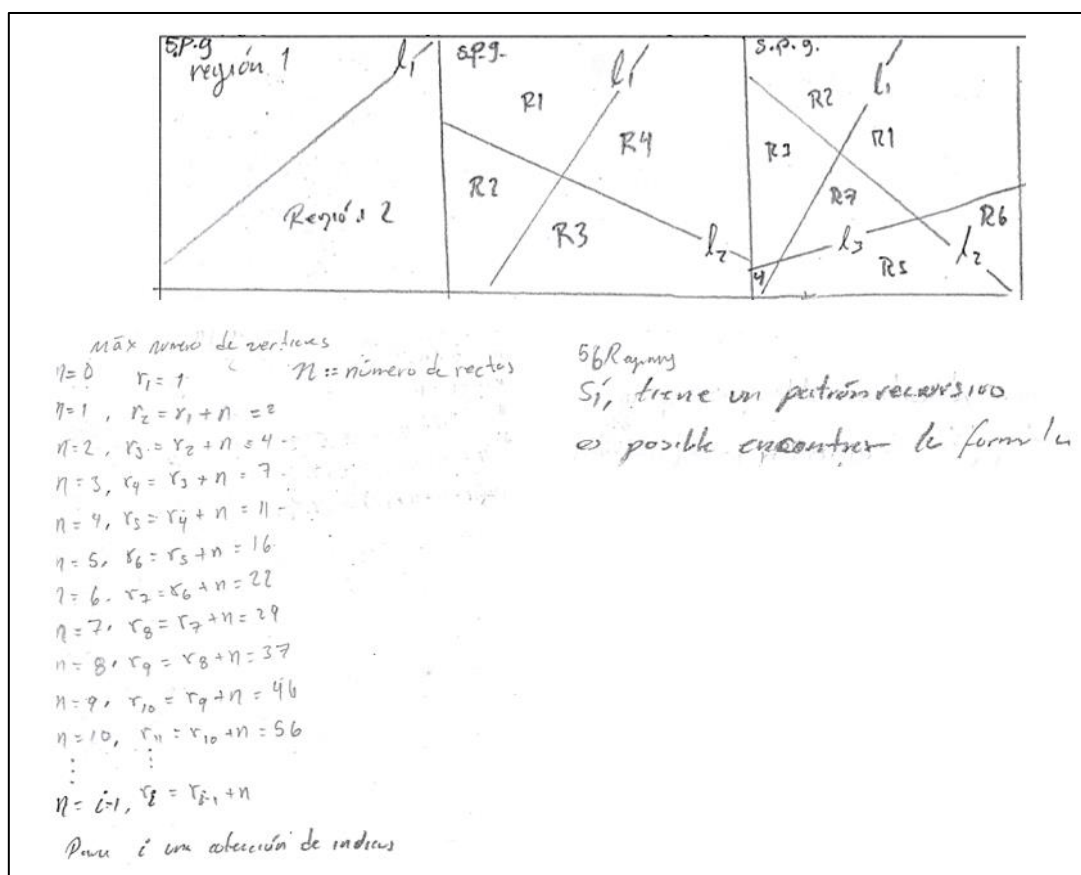 S.P.g
región 1
l₁
Región 2
S.P.g.
l₁
R1
R4
R2
R3
l₂
S.P.g.
R2
l₁
R3
R1
R7
R6
l₃
4
R5
l₂
máx número de vertices
n=0 r₁=1 n:=número de rectas
n=1, r₂=r₁+n=2
n=2, r₃=r₂+n=4
n=3, r₄=r₃+n=7
n=4, r₅=r₄+n=11
n=5, r₆=r₅+n=16
n=6, r₇=r₆+n=22
n=7, r₈=r₇+n=29
n=8, r₉=r₈+n=37
n=9, r₁₀=r₉+n=46
n=10, r₁₁=r₁₀+n=56
n=i-1, rᵢ=rᵢ₋₁+n
Para i una colección de indices
56
Sí, tiene un patrón recursivo
es posible encontrar la formula